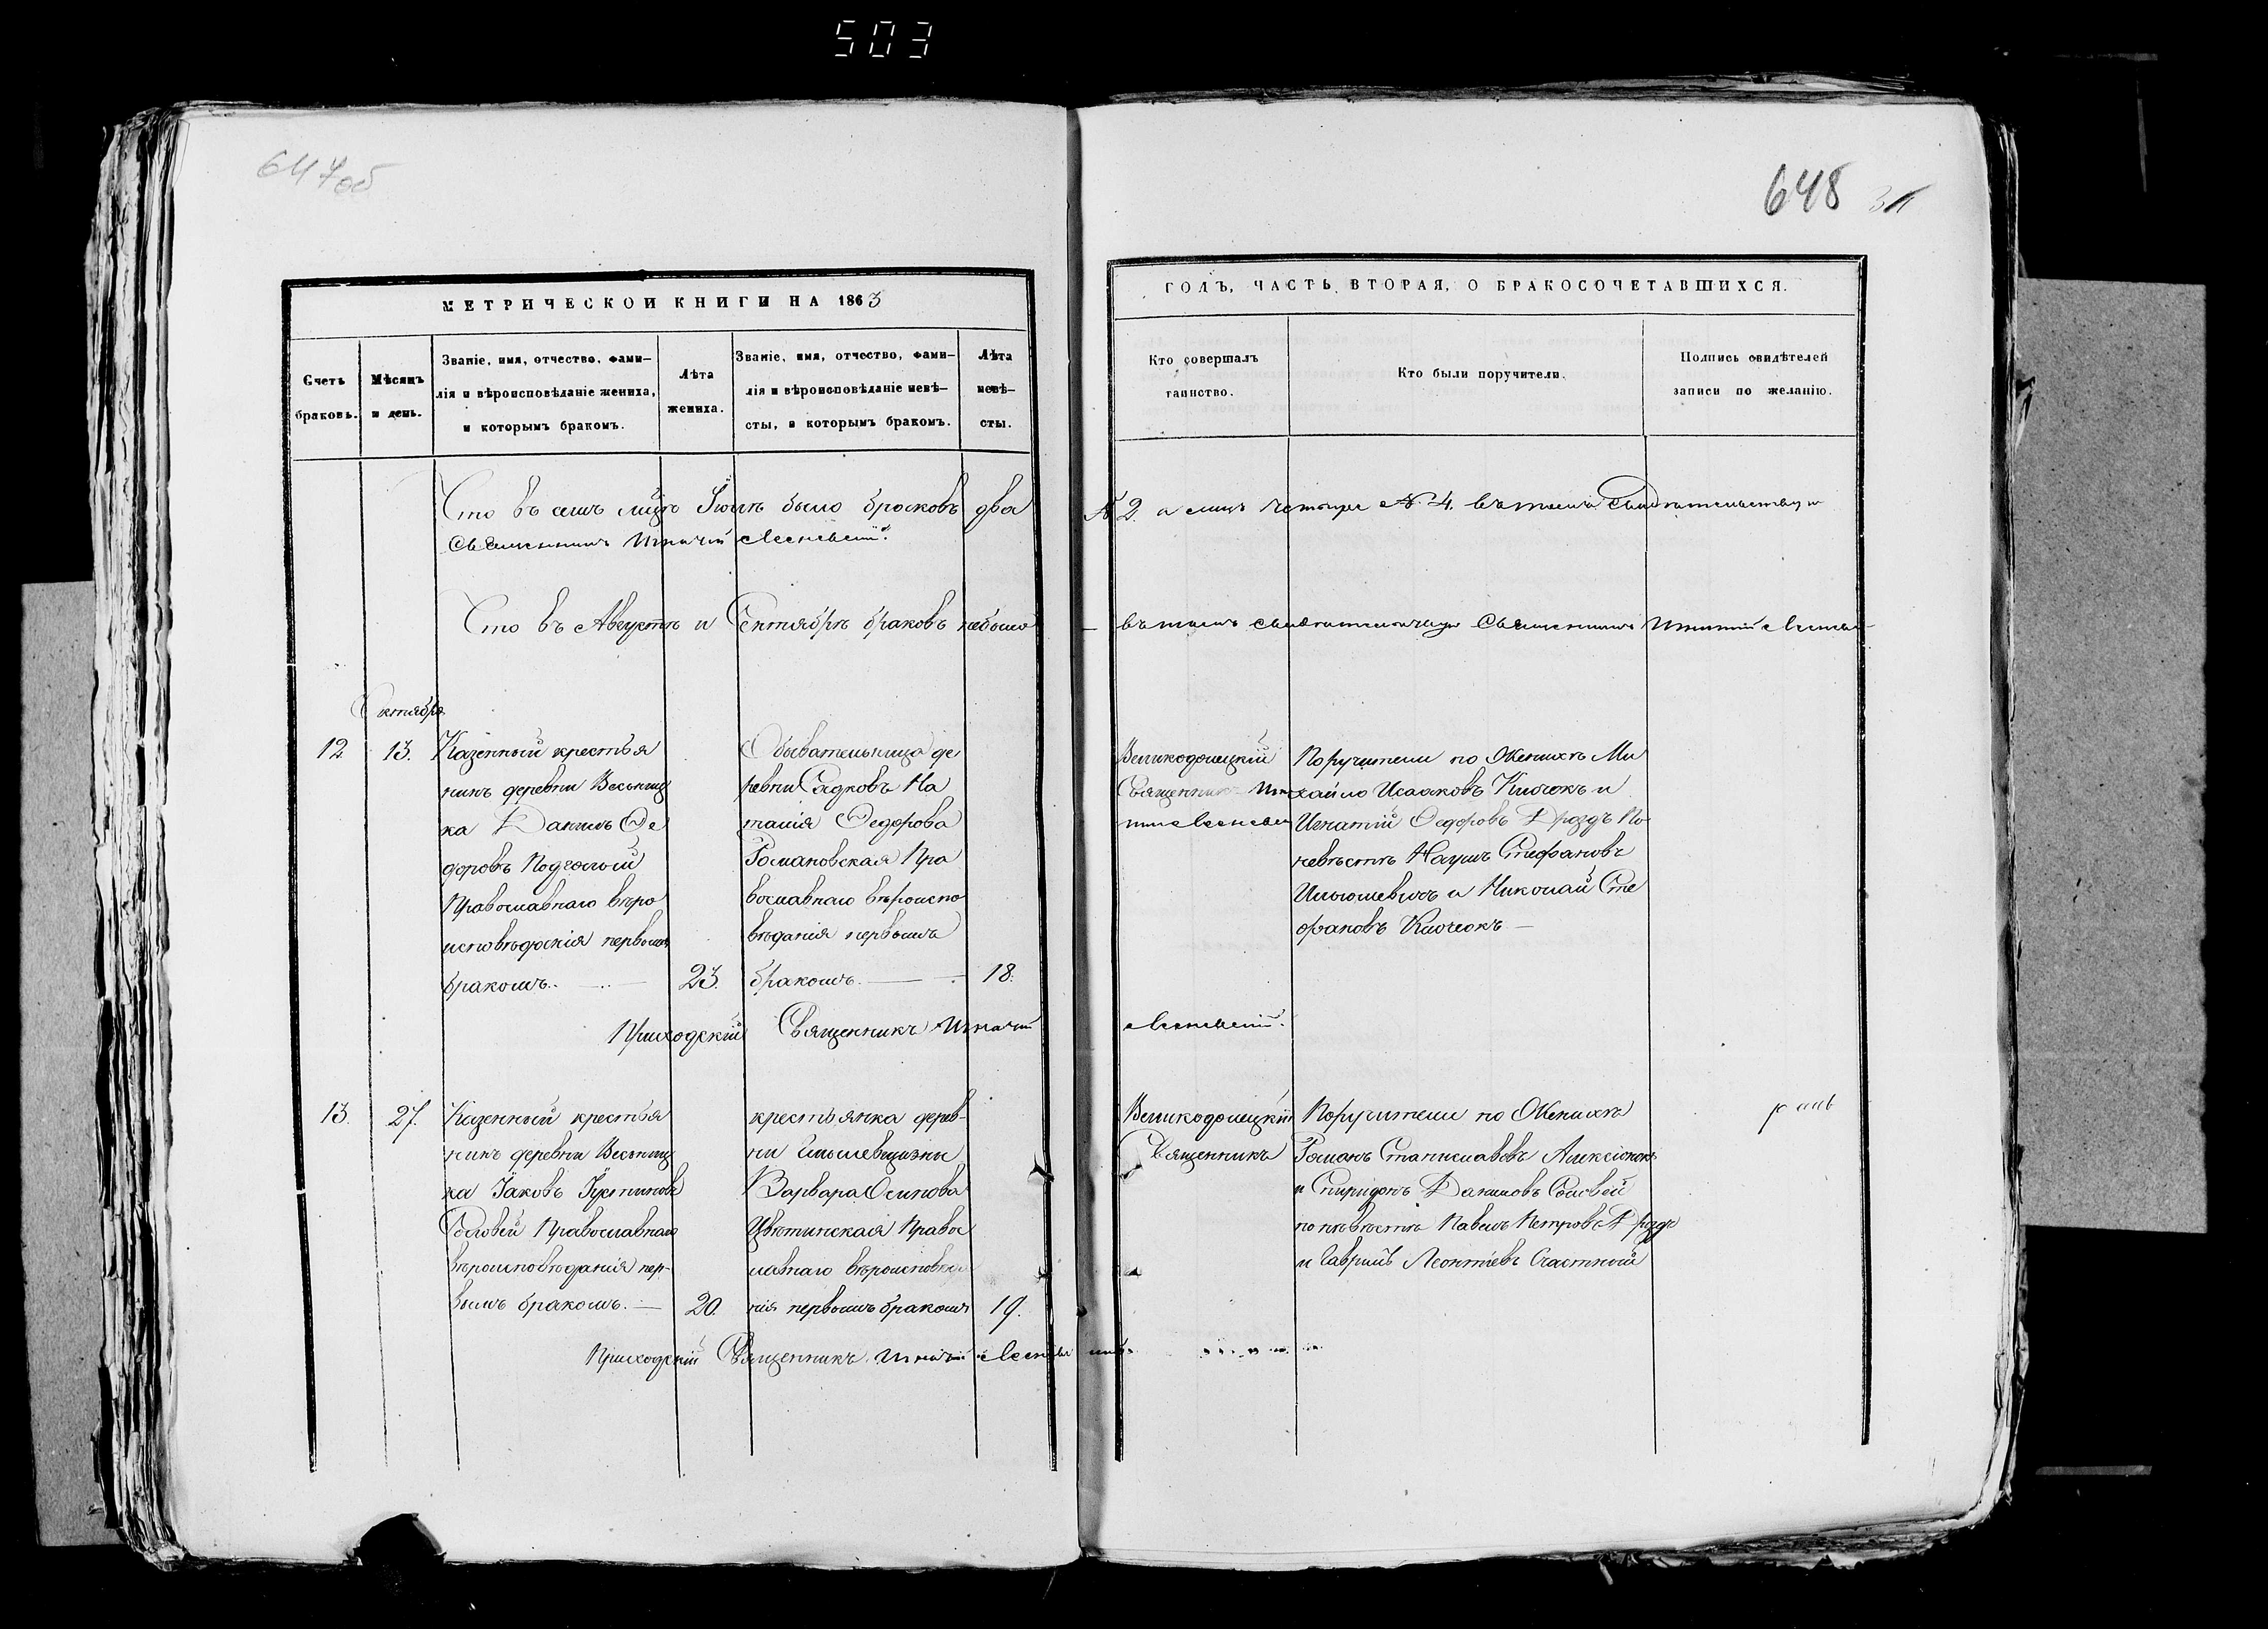 503
647об
648
МЕТРИЧЕСКОЙ КНИГИ НА 1863
ГОДЪ, ЧАСТЬ ВТОРАЯ, О БРАКОСОЧЕТАВШИХСЯ.
Счетъ
браковъ.
Мѣсяцъ
и день.
Званіе, имя, отчество, фами-
лія и вѣроисповѣданіе жениха,
и которымъ бракомъ.
Лѣта
жениха.
Званіе, имя, отчество, фами-
лія и вѣроисповѣданіе невѣ-
сты, и которымъ бракомъ.
Лѣта
невѣ-
сты.
Кто совершалъ
таинство.
Кто были поручители.
Подпись свидѣтелей
записи по желанію.
Что въ семъ мцѣ Іюлѣ было браковъ два № 2. а лицъ четыре № 4. въ томъ свидѣтельствую
Священникъ Игнатій
Что въ Августѣ и Сентябрѣ браковъ небыло — въ томъ свидѣтельствую Священникъ Игнатій
Октябрь
12. 13.
Казенный крестья
нинъ деревни Весниц
ка Данилъ Фе
доровъ Подголый
Православнаго вѣро
исповѣданія первымъ
бракомъ. — 23.
Обывательница де
ревни Садковъ На
талія Федорова
Романовская Пра
вославнаго вѣроиспо
вѣданія первымъ
бракомъ. — 18.
Великодолецкій
Священник Иг
Поручители по Женихѣ Ми
хайло Исааковъ Клочокъ и
Игнатій Федоровъ Дроздъ По
невѣстѣ Наумъ Стефановъ
Ильюшевичъ и Николай Сте
фановъ Клочокъ —
Приходскій Священникъ Игнатій
13. 27.
Казенный крестья
нинъ деревни Весниц
ка Іаковъ Іустиновъ
Соловей Православнаго
вѣроисповѣданія пер-
вымъ бракомъ. — 20.
крестьянка дерев-
ни Ильюшевщизны
Варвара Осипова
Цвѣтинская Правос
лавнаго вѣроисповѣда
нія первымъ бракомъ 19.
Великодолецкій
Священникъ
Поручители по Женихѣ
Романъ Станиславовъ Алексіонокъ
и Спиридонъ Даниловъ Соловей
по невѣстѣ Павелъ Петровъ Дроздъ
и Гавріилъ Леонтіевъ Счастный
Приходскій Священникъ Игнатій